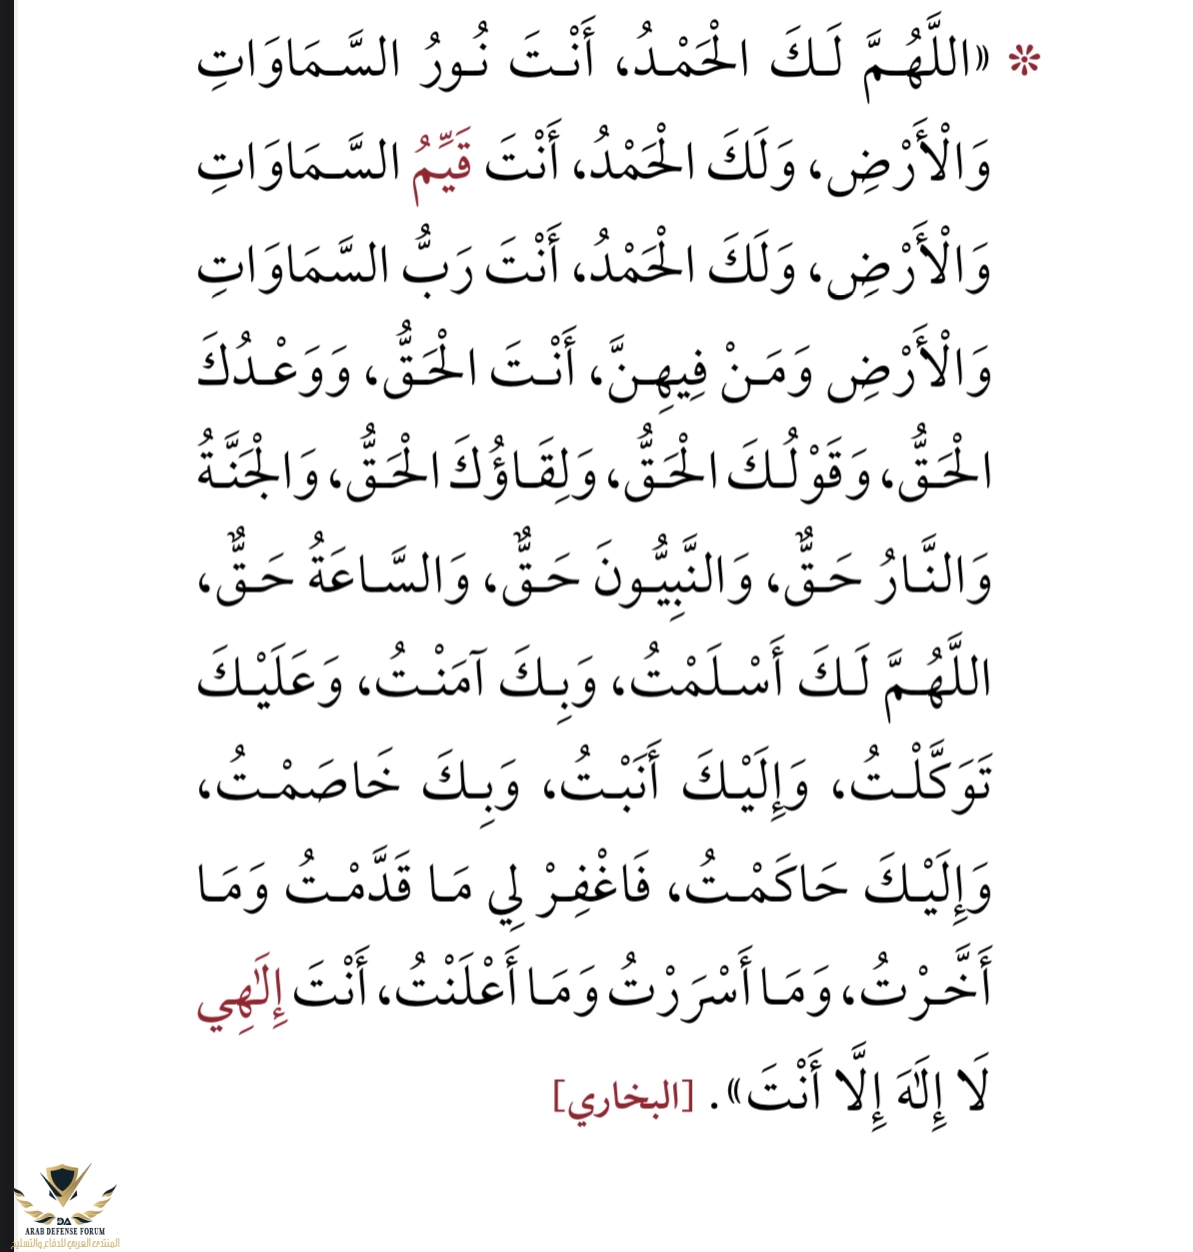 * «اللَّهُمَّ لَكَ الْحَمْدُ، أَنْتَ نُورُ السَّمَاوَاتِ
وَالْأَرْضِ، وَلَكَ الْحَمْدُ، أَنْتَ قَيِّمُ السَّمَاوَاتِ
وَالْأَرْضِ، وَلَكَ الْحَمْدُ، أَنْتَ رَبُّ السَّمَاوَاتِ
وَالْأَرْضِ وَمَنْ فِيهِنَّ، أَنْتَ الْحَقُّ، وَوَعْدُكَ
الْحَقُّ، وَقَوْلُكَ الْحَقُّ، وَلِقَاؤُكَ الْحَقُّ، وَالْجَنَّةُ
وَالنَّارُ حَقٌّ، وَالنَّبِيُّونَ حَقٌّ، وَالسَّاعَةُ حَقٌّ،
اللَّهُمَّ لَكَ أَسْلَمْتُ، وَبِكَ آمَنْتُ، وَعَلَيْكَ
تَوَكَّلْتُ، وَإِلَيْكَ أَنَبْتُ، وَبِكَ خَاصَمْتُ،
وَإِلَيْكَ حَاكَمْتُ، فَاغْفِرْ لِي مَا قَدَّمْتُ وَمَا
أَخَّرْتُ، وَمَا أَسْرَرْتُ وَمَا أَعْلَنْتُ، أَنْتَ إِلَٰهِي
لَا إِلَٰهَ إِلَّا أَنْتَ». [البخاري]
DA
ARAB DEFENSE FORUM
المنتدى العربي للدفاع والتسليح